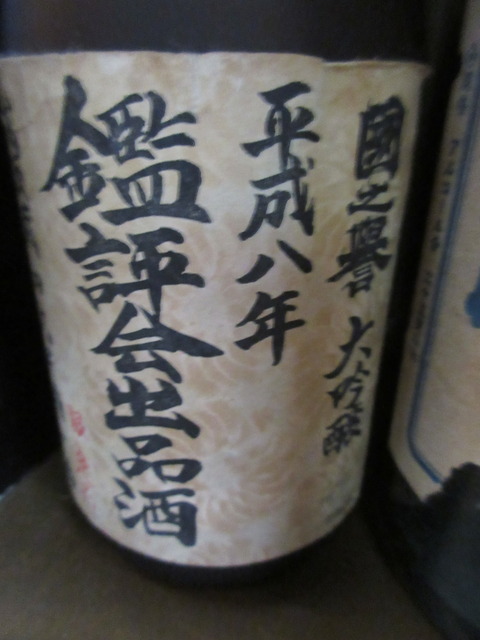 國之譽 大吟醸
平成八年
鑑評会出品酒